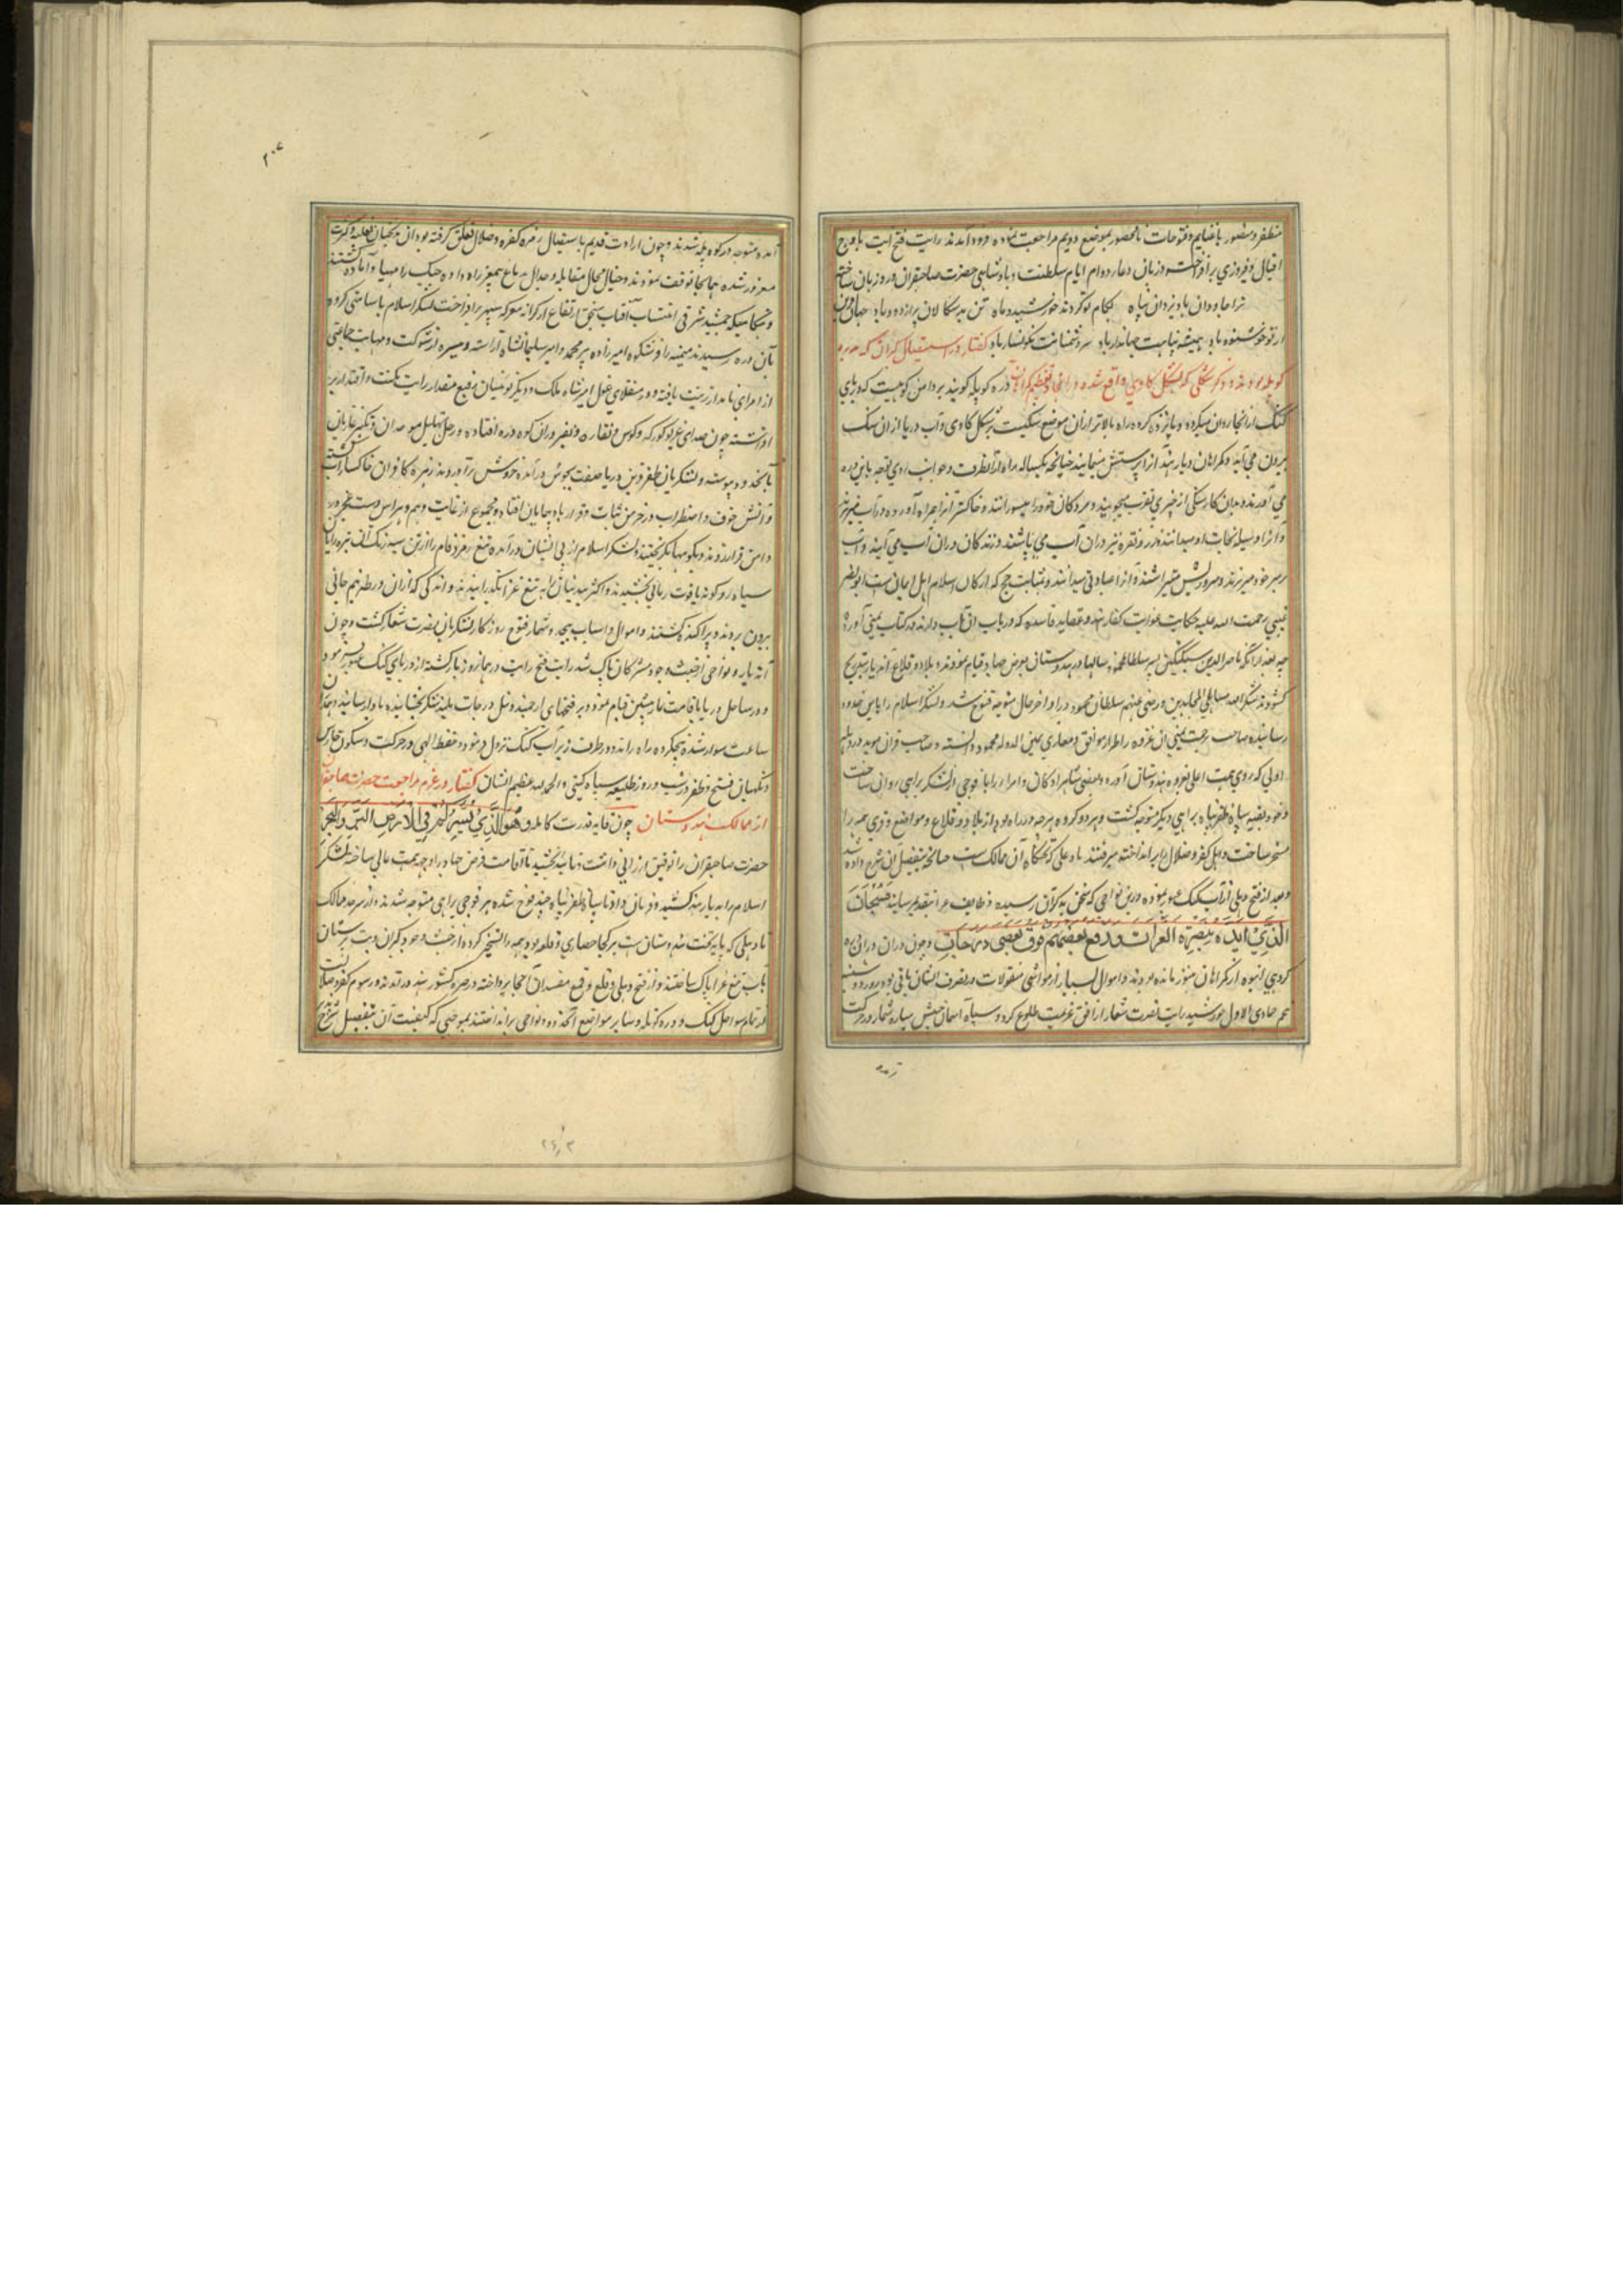 مظفر و منصور با غنایم و فتوحات نامحصور بموضع دویم مراجعت نموده فرود آمدند رایت فتح آیت باوج
اقبال و فیروزی برافراخت و زبان دعا ر دوام ایام سلطنت و پادشاهی حضرت صاحبقران ورد زبان ساخته
ترا جاودان باد یزدان پناه بکام تو گردنده خورشید و ماه تن بدسکالان پر از درد باد جهان
از تو خوشنود باد همیشه پناهت جهاندار باد سر دشمنانت نگونسار باد گفتار در استیصال گبران که در دره
کوپله بودند و ذکر سنگی که بشکل گاوی واقع شده در انجا و تعظیم گبران آنرا دره کوپله گویند بر دامن کوهیست که دریای
گنگ از آنجا روان میگردد و پانزده کروه راه بالاتر ازان موضع سنگیست بر شکل گاوی و آب دریا از ان سنگ
بیرون می آید و گمراهان دیار هند آنرا پرستش مینمایند چنانچه یکساله راه از اطراف و جوانب روی توجه باین دره
می آورند و بدان گاو سنگی از خیری تقرب میجویند و مردگان خود را میسوزانند و خاکستر آنرا همراه آورده در آب میریزند
و آنرا وسیله نجات او میدانند و زر و نقره نیز دران آب می پاشند و زندگان دران آب می آیند و آب
بر سر خود میریزند و سر و ریش میتراشند و آنرا عبادتی میدانند و بمثابت حج که ارکان اسلام اهل ایمان است ابو نصر
عتبی رحمت الله علیه حکایت غوایت کفار هند و عقاید فاسده که در باب آن آب دارند در کتاب یمینی آورده
چه بعد از آنکه ناصر الدین سبکتگین پدر سلطان محمود سالها در هندوستان بفرض جهاد قیام نمودند و بلاد و قلاع آن دیار بتدریج
گشودند شکر الله مساعی المجاهدین و رضی عنهم سلطان محمود در اواخر حال متوجه قنوج شد و لشکر اسلام را باین حدود
رسانیده صاحب ترجمت یمینی آن غزوه را طراز مواقف و مغازی یمین الدوله محمود دانسته و صاحب قران موید در وهله
اولی که روی همت اعلی بغزوه هندوستان آورد و بعضی شاهزادگان و امرا را با فوجی از لشکر براهی روان ساخت
و خود بقیه سپاه ظفرپناه براهی دیگر متوجه گشت و هر دو گروه هر چه در راه بود از بلاد و قلاع و مواضع و قری همه را
مسخر ساخت و اهل کفر و ضلال را برانداخته میرفتند تا دهلی که تختگاه آن ممالک ست چنانچه بتفصیل آن شرح داده شد
و بعد از فتح دهلی از آب گنگ عبور نموده درین نواحی که سخن بذکر آن رسیده وظایف مراتب بتقدیم رسانید فسبحان
الذی ایده بنصره العزیز و رفع بعضهم فوق بعض درجات و چون دران دره
گروهی انبوه از گمراهان هنوز مانده بودند و اموال بسیار از مواشی و منقولات در تصرف ایشان باقی بود روز دوشنبه
پنجم جمادی الاول خورشید رایت نصرت شعار از افق عزیمت طلوع کرد و سپاه آسمان جیش ستاره شمار در حرکت
۲۰۷
آمده متوجه دره کوپله شدند و چون ارادت قدیم باستیصال زمره کفره و ضلال تعلق گرفته بود آن بدبختان بغلبه و کثرت
مغرور شده همانجا توقف نمودند و خیال محال مقابله و جدال بدماغ بیمغز راه داده جنگ را مهیا و آماده گشتند
و هنگامیکه جمشید شرقی انتساب آفتاب سنجق ارتفاع از کرانه معرکه سپهر برافراخت لشکر اسلام با سامتی کروه
بان دره رسیدند میمنه را از شکوه امیرزاده پیرمحمد و امیر سلیمانشاه آراسته و میسره از شوکت و مهابت جماعتی
از امرای نامدار زینت یافته و در منقلای غول امیر شاه ملک و دیگر نوئینان رفیع مقدار رایت مکنت و اقتدار بر
افراشته چون صدای غریو کورکه و کوس و نقاره و نفیر دران کوه دره افتاده و زجل تهلیل موحدان و تکبیر غازیان
بآنحد پیوسته و لشکریان ظفر قرین دریا صفت بجوش درآمده خروش برآوردند زمره کافران خاکسار
و آتش خوف و اضطراب در خرمن ثبات و قرار باد پیمایان افتاد و مجموع از غایت وهم و هراس دست عجز در
دامن فرار زدند و بکوهها بگریختند و لشکر اسلام از پی ایشان درآمده تیغ زمرد فام را از تن سیه رنگ آن تیره رایان
سیاه رو گونه یاقوت رمانی بخشیدند و اکثر بیدینان را به تیغ غزا بگذرانیدند و اندکی که ازان ورطه نیم جانی
بیرون بردند پراکنده گشتند و اموال و اسباب بیحد و شمار فتوح روزگار لشکریان نصرت شعار گشت و چون
آن دیار و نواحی از خبث وجود مشرکان پاک شد رایت فتح رایت در همانروز بازگشته از دریای گنگ عبور نمود
و در ساحل دریا باقامت نماز پیشین قیام نمود و بر فتحهای ارجمند و نیل درجات بلند شکر بخشاینده باد رسانید و هماندم
ساعت سوار شده پنج کروه راه رانده در طرف زیر آب گنگ نزول فرمود و حفظ الهی در حرکت و سکون حارس
و نگهبان فتح و ظفر در شب و روز طلیعه سپاه گیتی و الحمد لله عظیم الشان گفتار در عزم مراجعت حضرت صاحبقران
از ممالک هندوستان چون قاید قدرت کامله هو الذی یسیرکم فی البر و البحر
حضرت صاحبقران را توفیق ارزانی داشت و تایید بخشید تا اقامت فرض جهاد را وجهه همت عالی ساخته لشکر
اسلام را به دیار هند کشید و فرمان داد تا سپاه ظفرپناه چند فوج شده هر فوجی براهی متوجه شدند و از سرحد ممالک
تا دهلی که پایه تخت هندوستان ست هر کجا حصاری و قلعه بود همه را تسخیر کرده از خبث وجود گبران و بت پرستان
بآب تیغ غزا پاک ساختند و از فتح دهلی و قلع و قمع مفسدان آنجا پرداخته در صدر کشور هند در آمدند و رسوم کفر و ضلالت
از تمام سواحل گنگ و دره کوپله و سایر مواضع آنحدود و نواحی برانداختند بموجبی که کیفیت آن بتفصیل شرح